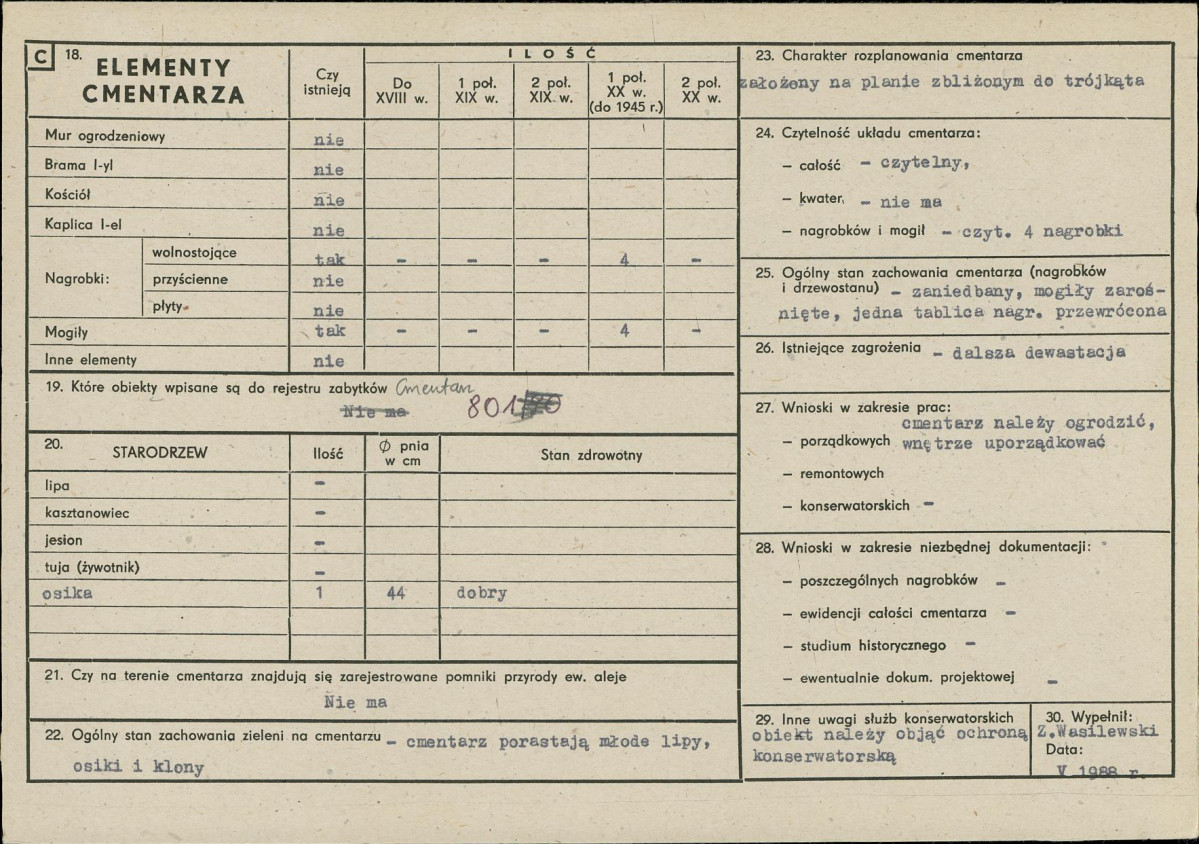 C 18. ELEMENTY CMENTARZA
Czy istnieją
ILOŚĆ
Do XVIII w.
1 poł. XIX w.
2 poł. XIX w.
1 poł. XX w. (do 1945 r.)
2 poł. XX w.
Mur ogrodzeniowy nie
Brama I-yl nie
Kościół nie
Kaplica I-el nie
Nagrobki:
wolnostojące tak - - - 4 -
przyścienne nie
płyty nie
Mogiły tak - - - 4 -
Inne elementy nie
19. Które obiekty wpisane są do rejestru zabytków Cmentarz
Nie ma 801
20. STARODRZEW Ilość Ø pnia w cm Stan zdrowotny
lipa -
kasztanowiec -
jesion -
tuja (żywotnik) -
osika 1 44 dobry
21. Czy na terenie cmentarza znajdują się zarejestrowane pomniki przyrody ew. aleje
Nie ma
22. Ogólny stan zachowania zieleni na cmentarzu - cmentarz porastają młode lipy,
osiki i klony
23. Charakter rozplanowania cmentarza
założony na planie zbliżonym do trójkąta
24. Czytelność układu cmentarza:
— całość - czytelny,
— kwater, - nie ma
— nagrobków i mogił - czyt. 4 nagrobki
25. Ogólny stan zachowania cmentarza (nagrobków
i drzewostanu) - zaniedbany, mogiły zaroś-
nięte, jedna tablica nagr. przewrócona
26. Istniejące zagrożenia - dalsza dewastacja
27. Wnioski w zakresie prac:
cmentarz należy ogrodzić,
— porządkowych wnętrze uporządkować
— remontowych
— konserwatorskich -
28. Wnioski w zakresie niezbędnej dokumentacji:
— poszczególnych nagrobków -
— ewidencji całości cmentarza -
— studium historycznego -
— ewentualnie dokum. projektowej -
29. Inne uwagi służb konserwatorskich
obiekt należy objąć ochroną
konserwatorską
30. Wypełnił:
Z.Wasilewski
Data:
V 1988 r.